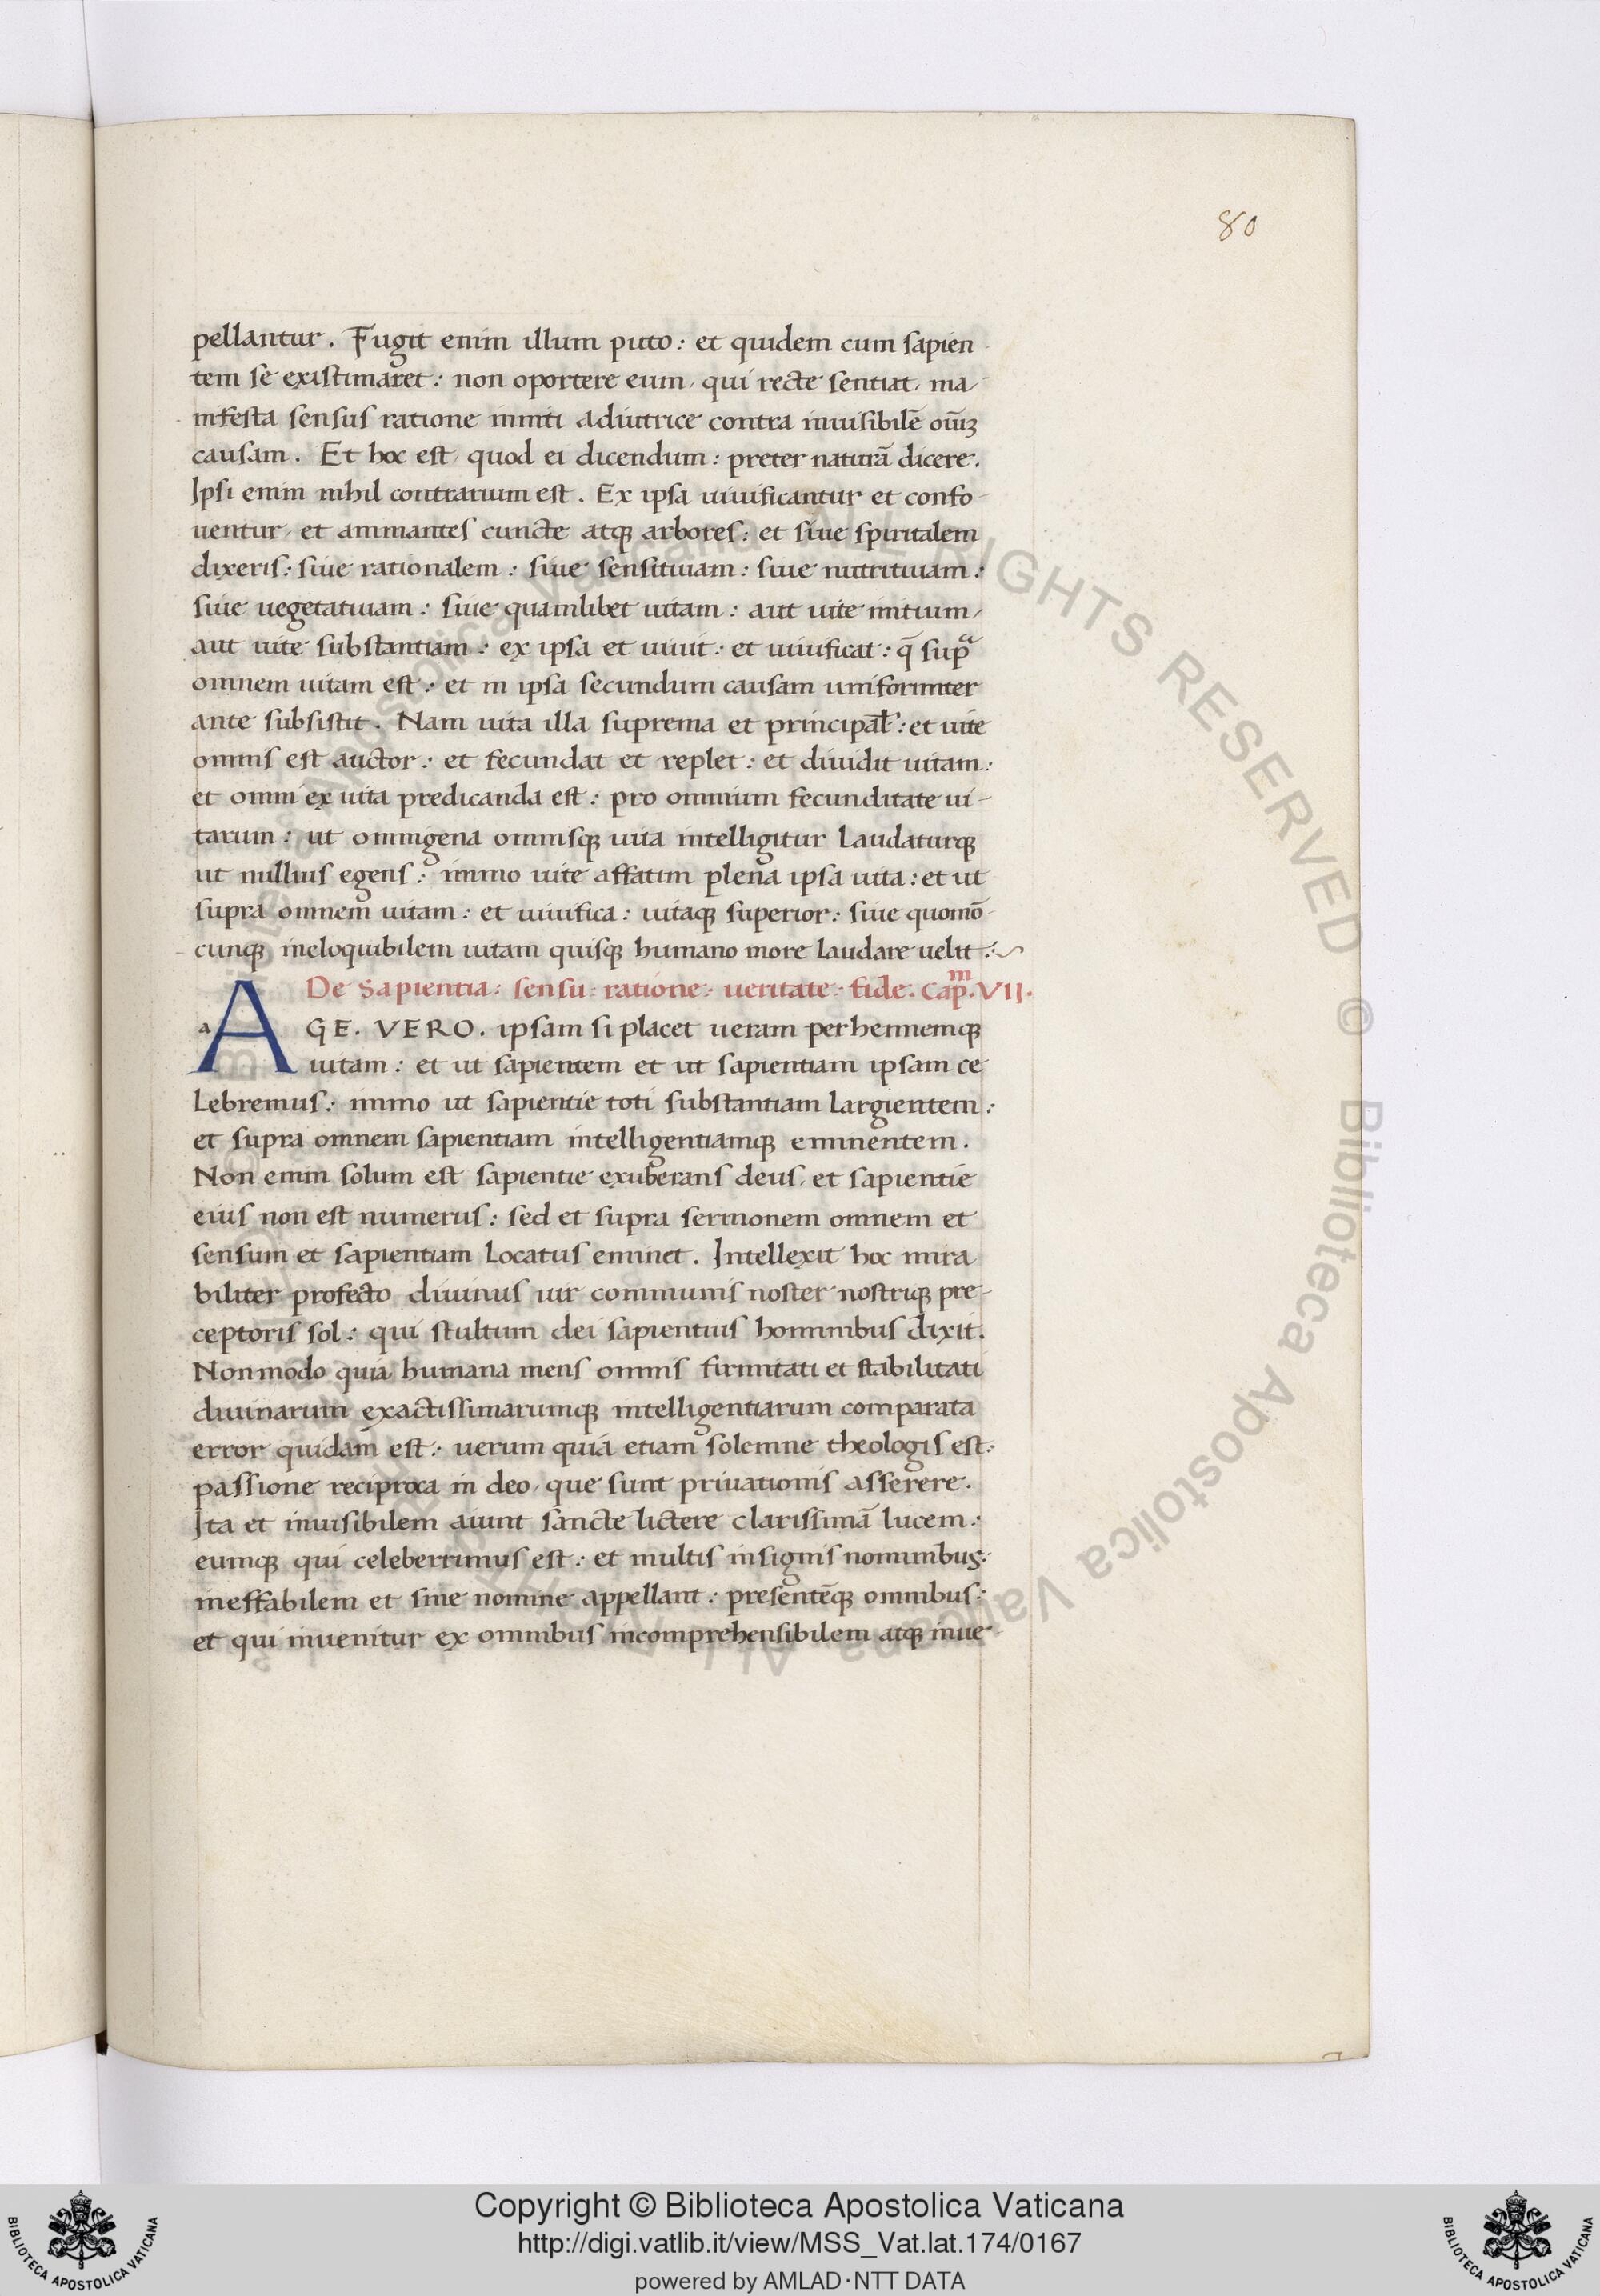 80
pellantur. Fugit enim illum puto: et quidem cum sapien
tem se existimaret: non oportere eum, qui recte sentiat, ma
nifesta sensus ratione inniti adiutrice contra inuisibilē oīuꝫ
causam. Et hoc est, quod ei dicendum: preter naturā dicere.
Ipsi enim nihil contrarium est. Ex ipsa uiuificantur et confo-
uentur, et animantes cuncte atqꝫ arbores: et siue spiritalem
dixeris: siue rationalem: siue sensitiuam: siue nutritiuam:
siue uegetatiuam: siue quamlibet uitam: aut uite initium,
aut uite substantiam: ex ipsa et uiuit: et uiuificat: q̄ supᵃ
omnem uitam est: et in ipsa secundum causam uniformiter
ante subsistit. Nam uita illa suprema et principał: et uite
omnis est auctor: et fecundat et replet: et diuidit uitam:
et omni ex uita predicanda est: pro omnium fecunditate ui-
tarum: ut omnigena omnisqꝫ uita intelligitur laudaturqꝫ
ut nullius egens: immo uite affatim plena ipsa uita: et ut
supra omnem uitam: et uiuifica: uitaqꝫ superior: siue quomō-
cunqꝫ ineloquibilem uitam quisqꝫ humano more laudare uelit:~
De sapientia: sensu: ratione: ueritate: fide. Capᵐ. VII.
a A GE. VERO. ipsam si placet ueram perhennemqꝫ
uitam: et ut sapientem et ut sapientiam ipsam ce
lebremus: immo ut sapientie toti substantiam largientem:
et supra omnem sapientiam intelligentiamqꝫ eminentem.
Non enim solum est sapientie exuberans deus, et sapientie
eius non est numerus: sed et supra sermonem omnem et
sensum et sapientiam locatus eminet. Intellexit hoc mira
biliter profecto diuinus uir communis noster nostriqꝫ pre-
ceptoris sol: qui stultum dei sapientius hominibus dixit.
Non modo quia humana mens omnis firmitati et stabilitati
diuinarum exactissimarumqꝫ intelligentiarum comparata
error quidam est: uerum quia etiam solemne theologis est:
passione reciproca in deo, que sunt priuationis asserere.
Ita et inuisibilem aiunt sancte lictere clarissimā lucem:
eumqꝫ qui celeberrimus est: et multis insignis nominibus:
ineffabilem et sine nomine appellant: presentēqꝫ omnibus:
et qui inuenitur ex omnibus incomprehensibilem atqꝫ inue-
Biblioteca Apostolica Vaticana ALL RIGHTS RESERVED © Biblioteca Apostolica Vaticana ALL
BIBLIOTECA APOSTOLICA VATICANA
Copyright © Biblioteca Apostolica Vaticana
http://digi.vatlib.it/view/MSS_Vat.lat.174/0167
powered by AMLAD·NTT DATA
BIBLIOTECA APOSTOLICA VATICANA